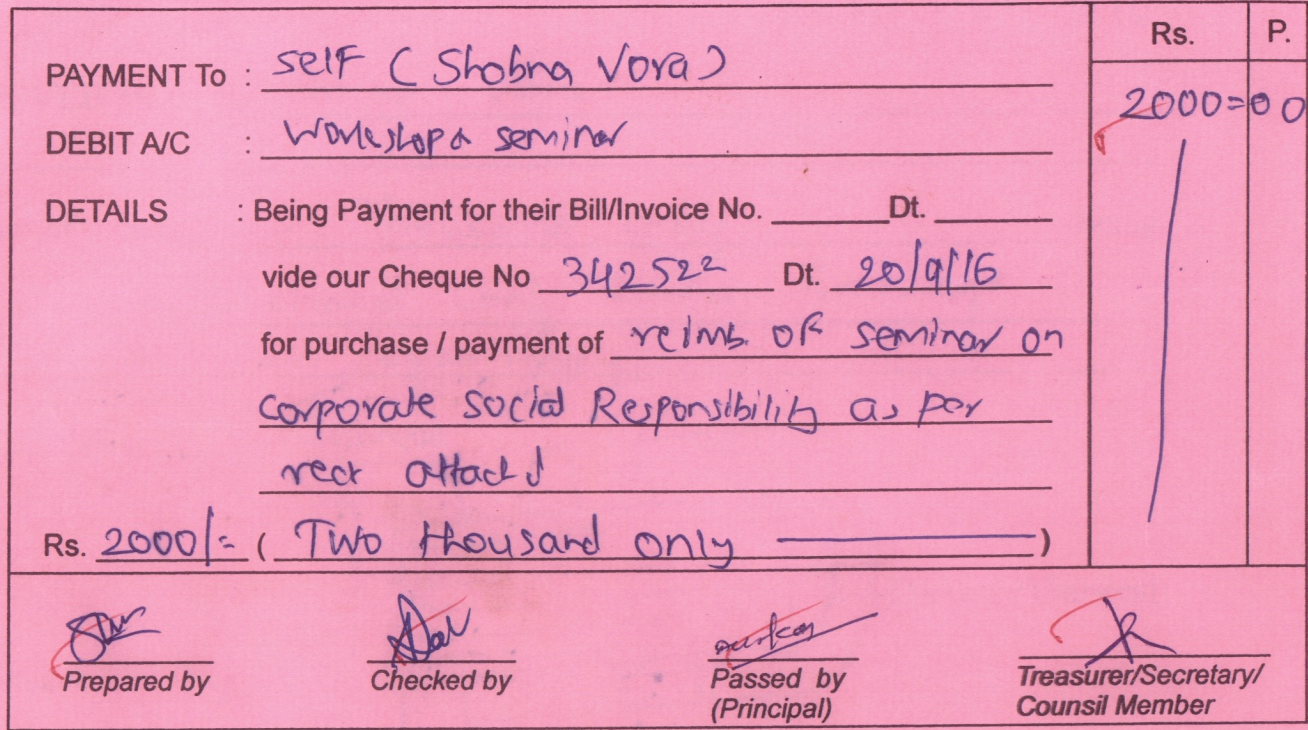 Rs. P.
PAYMENT To : self (Shobna Vora)
2000=00
DEBIT A/C : Workshop & seminar
DETAILS : Being Payment for their Bill/Invoice No. Dt.
vide our Cheque No 342522 Dt. 20/9/16
for purchase / payment of reimb. of seminar on
corporate social Responsibility as per
rect attachd
Rs. 2000/= ( Two thousand only )
Prepared by Checked by Passed by Treasurer/Secretary/
(Principal) Counsil Member